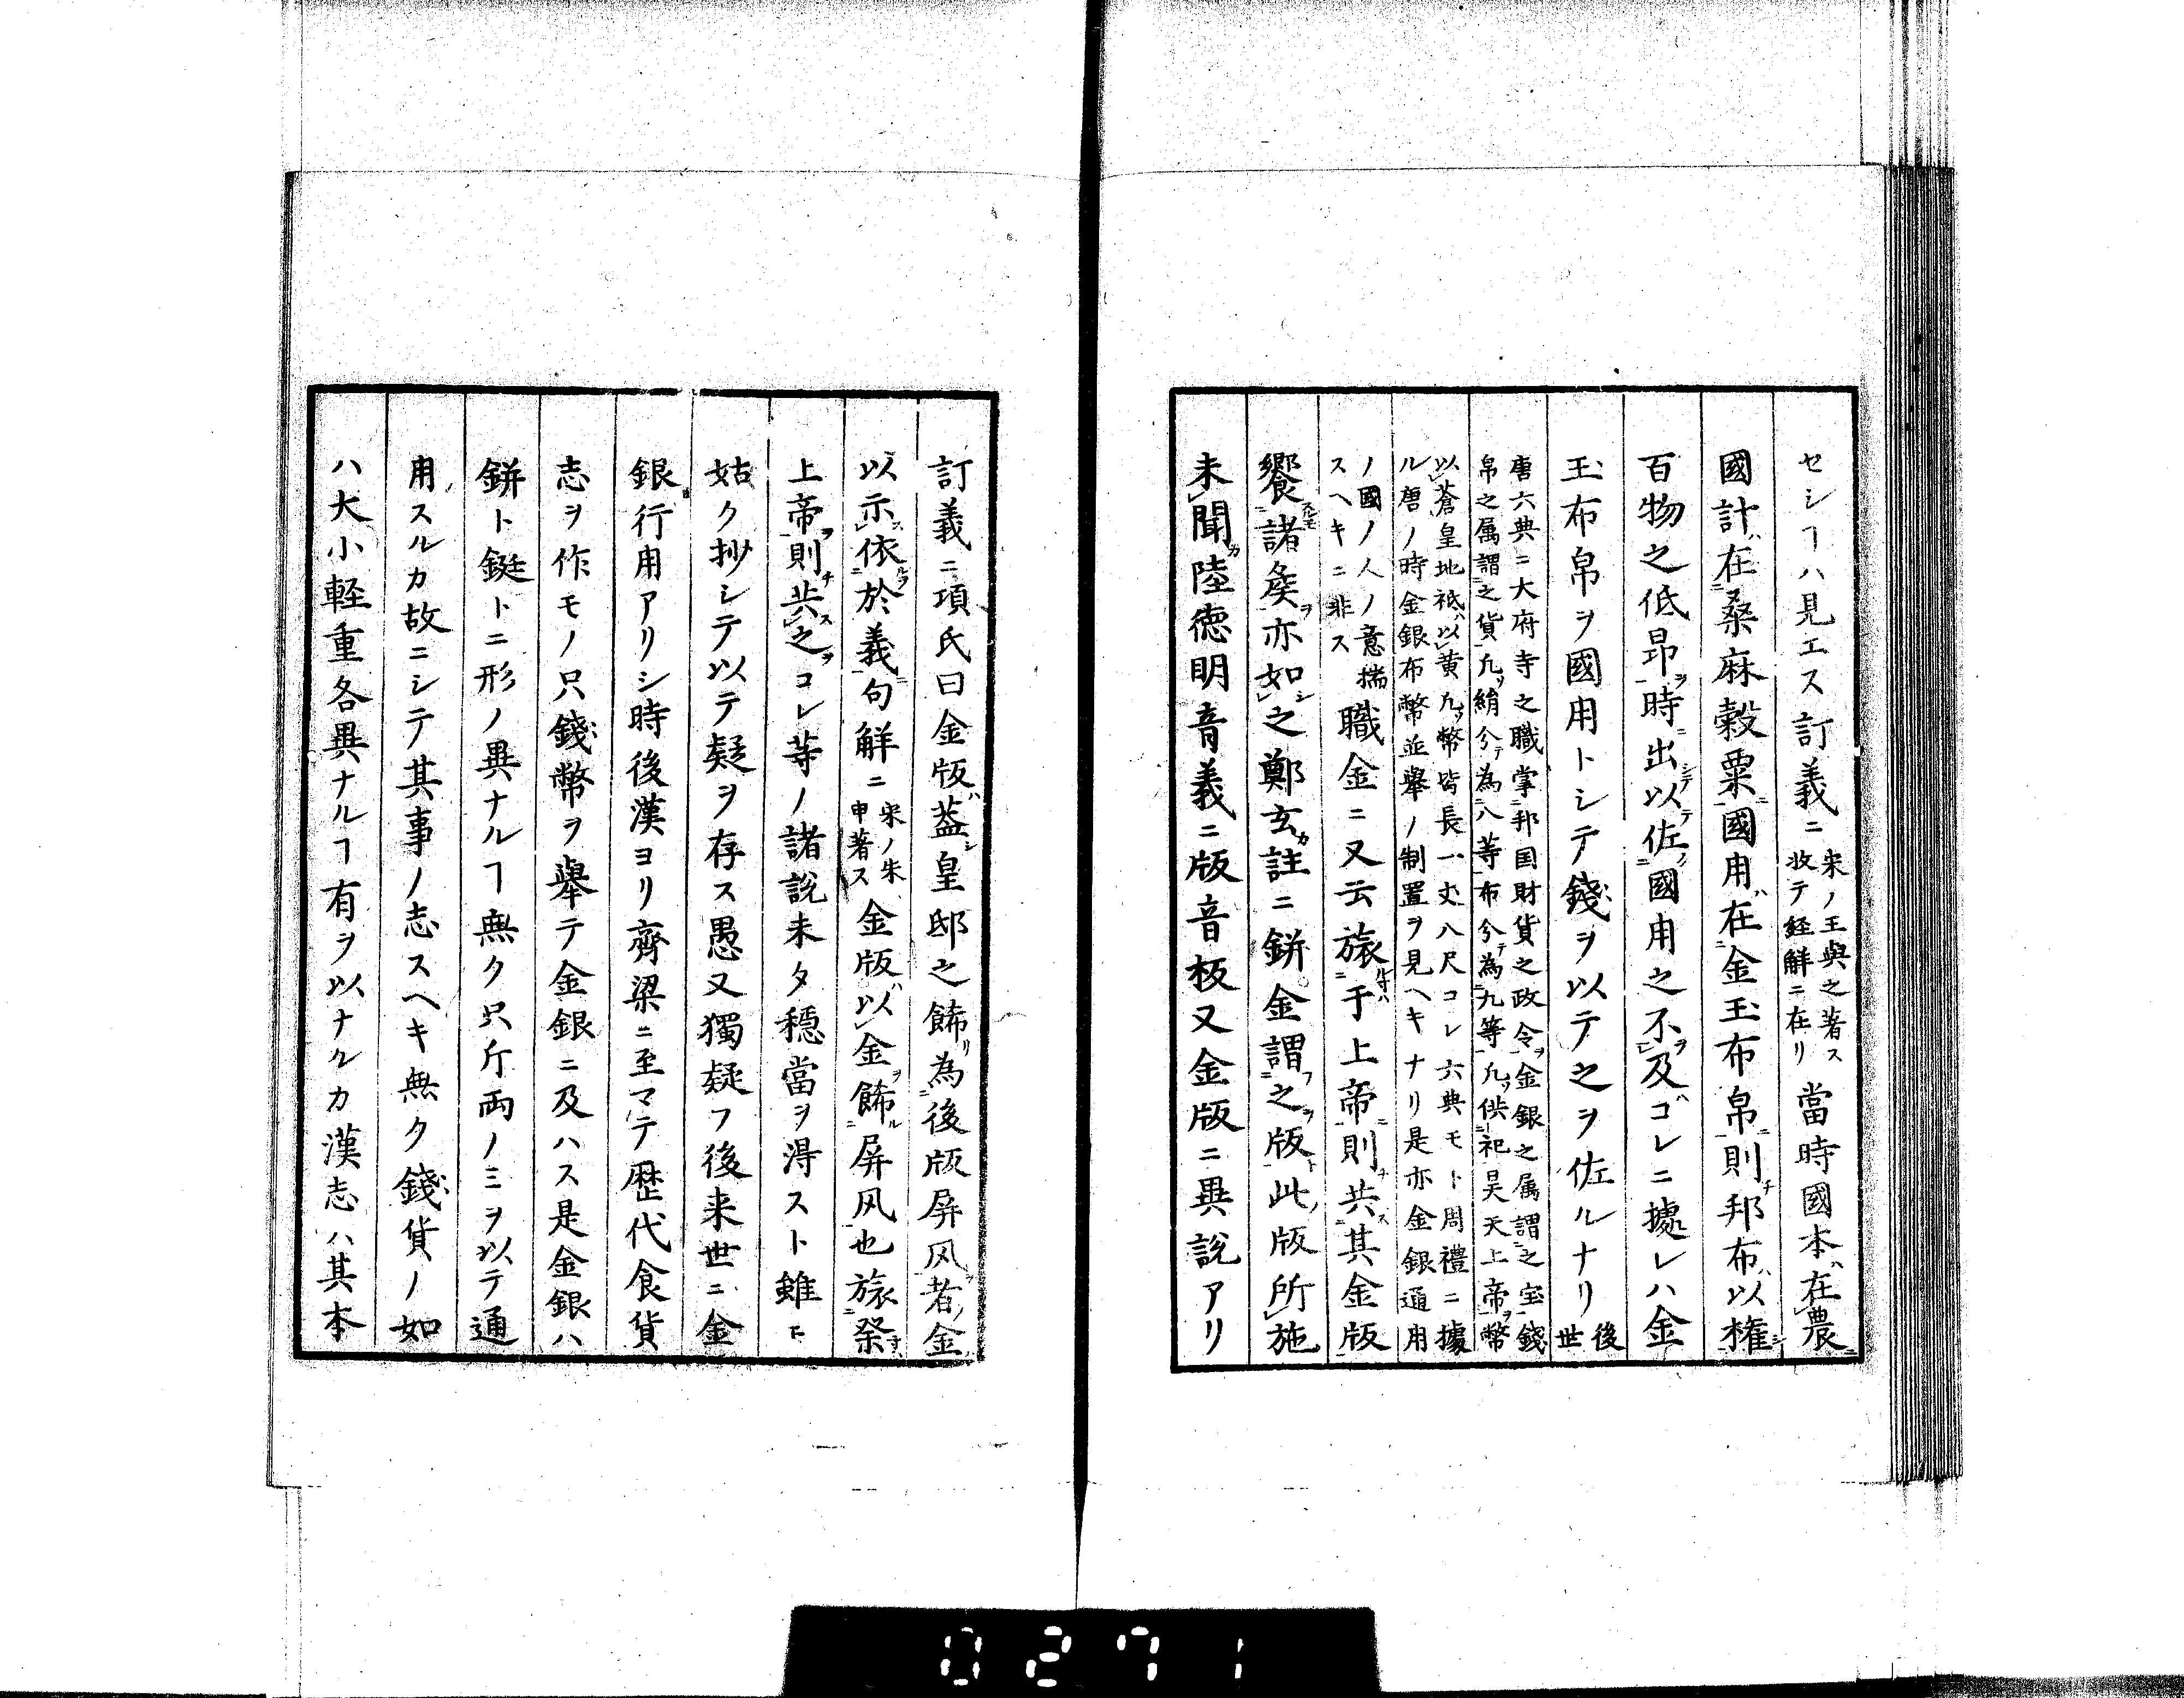 セシヿハ見エス訂義ニ宋ノ王與之著ス收テ経解ニ在リ當時國本ハ在農ニ
國計ハ在桑麻穀粟ニ國用ハ在金玉布帛ニ則チ邦布ハ以権シ
百物之低昂ヲ時ニ出シテ以テ佐ク國用之不ヲ及ハコレニ據レハ金
玉布帛ヲ國用トシテ錢ヲ以テ之ヲ佐ルナリ後世
唐六典ニ大府寺之職掌邦国財貨之政令ヲ金銀之属謂之宝錢
帛之属謂之貨凢絹分テ為八等布分テ為九等凢供祀昊天上帝ヲ幣
以蒼皇地祗ハ以黄凢ソ幣皆長一丈八尺コレ六典モト周禮ニ據
ル唐ノ時金銀布幣並舉ノ制置ヲ見ヘキナリ是亦金銀通用
ノ國ノ人ノ意揣
スヘキニ非ス
職金ニ又云旅ルキハ于上帝ニ則チ共ス其金版
饗スルモ諸矦ヲ亦如シ之鄭玄カ註ニ鉼金謂フ之ヲ版ト此版所施
未聞陸徳明カ音義ニ版音板又金版ニ異說アリ
訂義ニ項氏曰金版ハ蓋シ皇邸之餙リ為後版屏风ヲ者ノ金
以示ス依ルヲ於義ニ句解ニ宋ノ朱申著ス金版ハ以金ヲ餙ル屏风也旅祭キハ
上帝ヲ則チ共ス之ヲコレ等ノ諸說未タ穏當ヲ淂スト雖𪜈
姑ク抄シテ以テ疑ヲ存ス愚又獨疑フ後来世ニ金
銀行用アリシ時後漢ヨリ齊梁ニ至マテ歴代食貨
志ヲ作モノ只錢幣ヲ舉テ金銀ニ及ハス是金銀ハ
鉼ト鋌トニ形ノ異ナルヿ無ク只斤両ノミヲ以テ通
用スルカ故ニシテ其事ノ志スヘキ無ク錢貨ノ如
ハ大小軽重各異ナルヿ有ヲ以ナルカ漢志ハ其本
0271